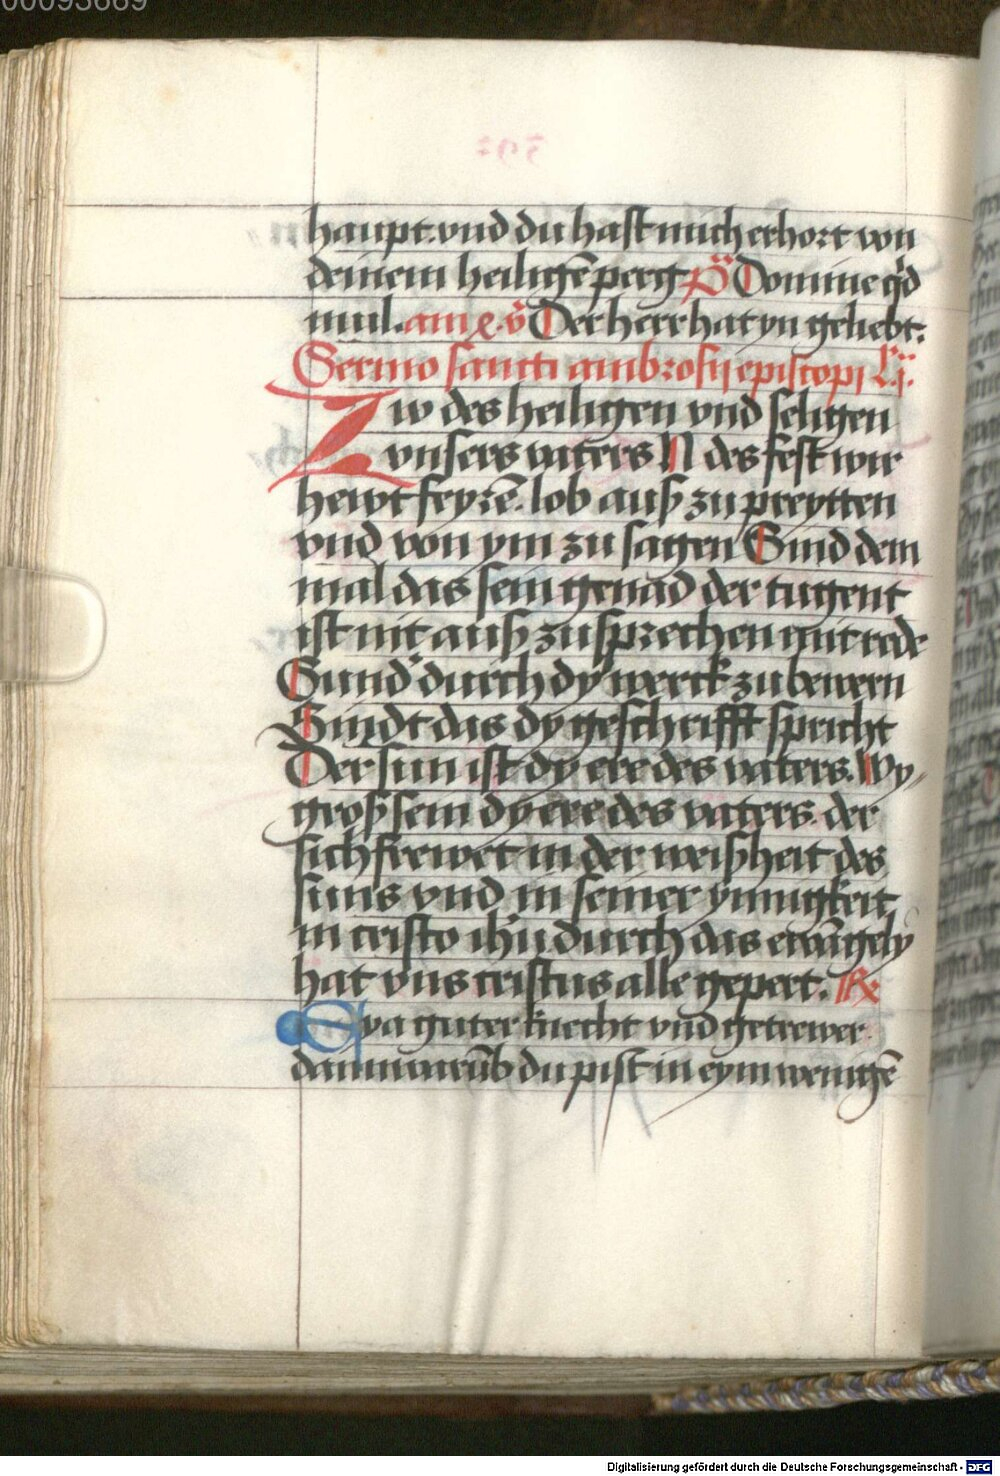 00093669
haupt. vnd du hast mich erhort von
deinem heiligē perg Ps Domine qͥd
mul. am e. v̄ Der herr hat yn geliebt.
Sermo sancti ambrosij episcopi L. j.
Zw des heiligen vnd seligen
vnsers vaters N des fest wir
hewt feyrē. lob auß zu preytten
vnd von ym zu sagen Sind dem
mal das sein genad der tugent
ist nit auß zu sprechen mit rede
Sund' durch dy werck zu bewern
Sindt das dy geschrifft spricht
Der sun ist dy ere des vaters. Wy
groß sein dy ere des vaters. der
sich frewet in der weißheit des
suns vnd in seiner ynnigkeit
in cristo ihū durch das ewāgely
hat vns cristus alle gepert. R
Eya guter knecht vnd getrewer.
dann warūb du pist in eym wenigē
Digitalisierung gefördert durch die Deutsche Forschungsgemeinschaft - DFG